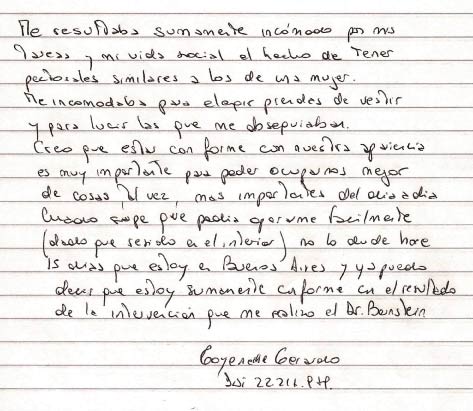 Me resultaba sumamente incómodo por mis
tareas y mi vida social el hecho de tener
pectorales similares a los de una mujer.
Me incomodaba para elegir prendas de vestir
y para lucir las que me obsequiaban.
Creo que estar conforme con nuestra apariencia
es muy importante para poder ocuparnos mejor
de cosas, tal vez, mas importantes del dia a dia
Cuando supe que podia operarme facilmente
(dado que resido en el interior) no lo dude hace
15 dias que estoy en Buenos Aires y ya puedo
decir que estoy sumamente conforme con el resultado
de la intervención que me realizo el Dr. Bernstein
Goyeneche Gerardo